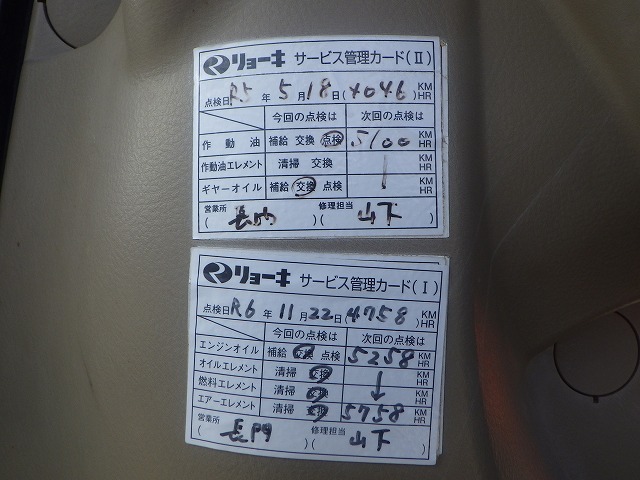 リョーキ サービス管理カード(Ⅱ)
点検日 R5 年 5 月 18 日 (4046) KM HR
今回の点検は 次回の点検は
作動油 補給 交換 点検 5100 KM HR
作動油エレメント 清掃 交換 KM HR
ギヤーオイル 補給 交換 点検 KM HR
営業所 修理担当
(長門) (山下)
リョーキ サービス管理カード(Ⅰ)
点検日 R6 年 11 月 22 日 (4758) KM HR
今回の点検は 次回の点検は
エンジンオイル 補給 交換 点検 5258 KM HR
オイルエレメント 清掃 交換 ↓ KM HR
燃料エレメント 清掃 交換 KM HR
エアーエレメント 清掃 交換 5758 KM HR
営業所 修理担当
(長門) (山下)